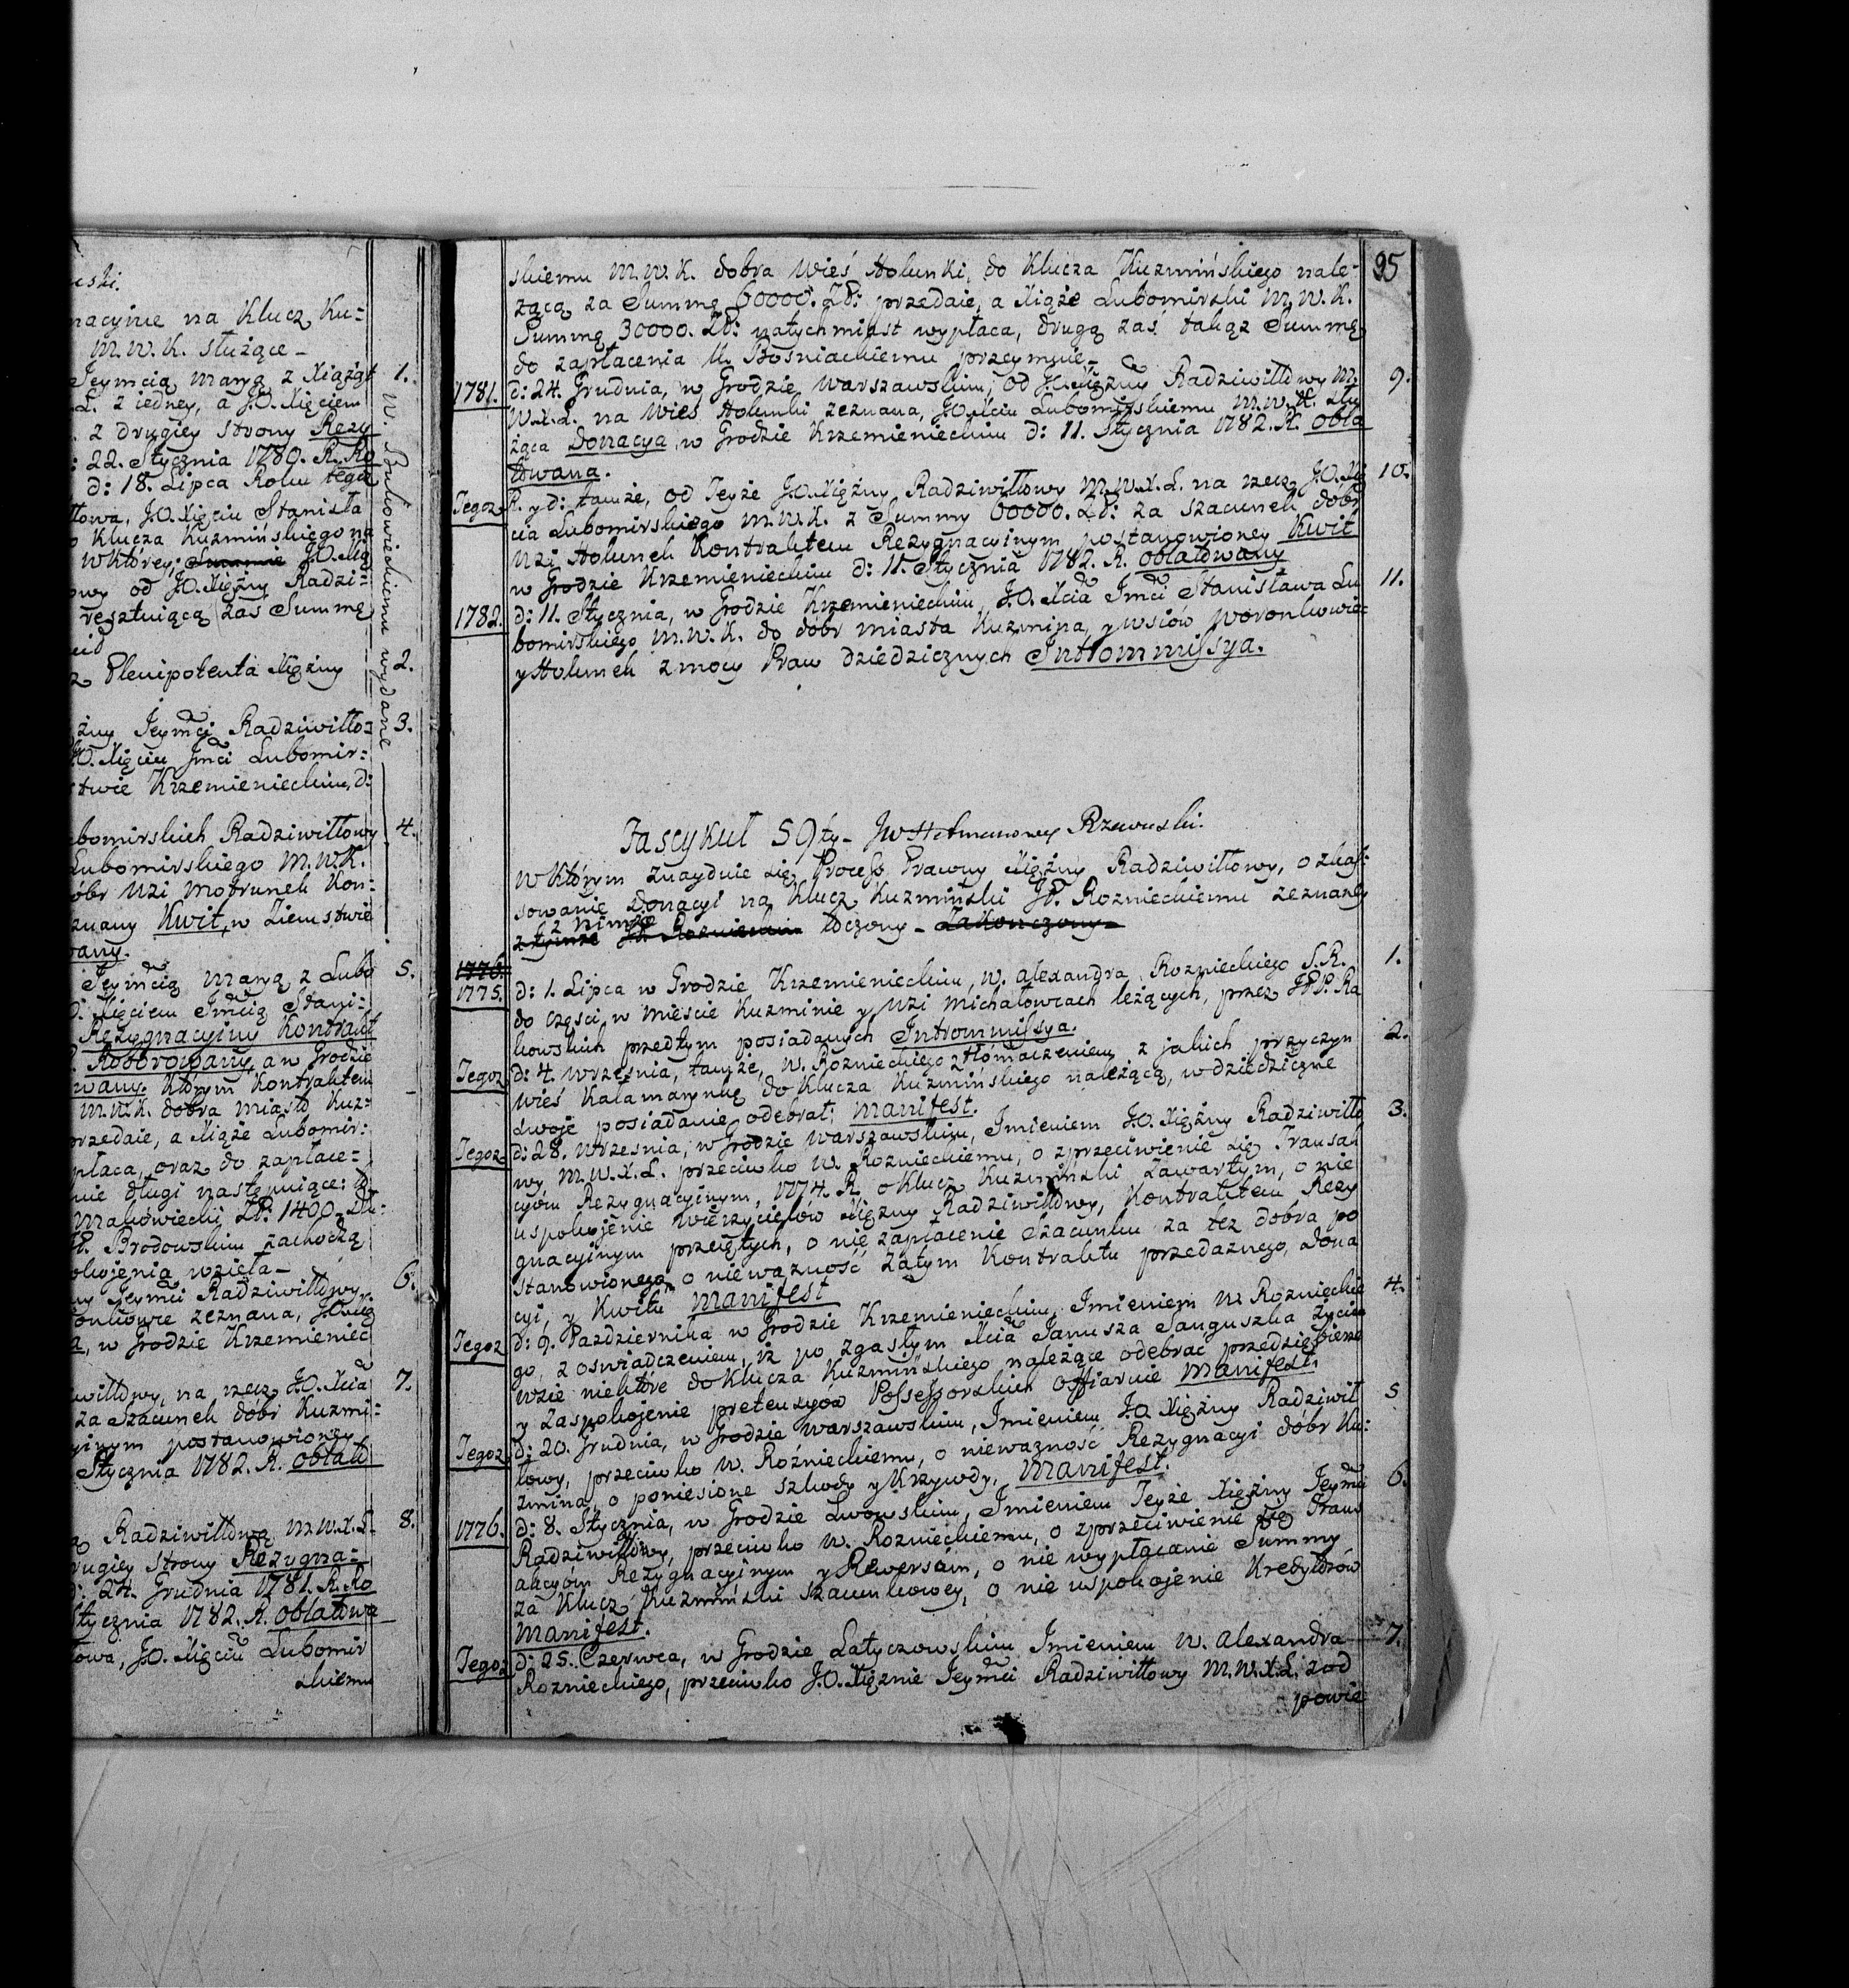 eski.
nacyine na Klucz Ku=
M.W.K. służące_
Jeymcią Maryą z Xiążąt 1.
L. z iedney, a J.O. Xięciem
z drugiey strony Rezy
: 22. Stycznia 1780. R. Ro
d: 18. Lipca Roku tegoż
łłowa, J.O. Xięciu Stanisła
o Klucza Kuzmińskiego na
w którey, Summie J.O. Xią
owy od J.O. Xiężny Radzi=
resztuiącą zaś Summę
W. Bukowieckiemu wydane
z Plenipotenta Xiężny 2.
żny Jeymći Radziwiłło= 3.
J.O. Xięciu Jmći Lubomir=
stwie Krzemienieckim, d:
ubomirskich Radziwiłłowy 4.
Lubomirskiego M.W.K.
óbr Wsi Motrunek Kon=
znany Kwit, w Ziemstwie
wany.
Jeymcią Maryą z Lubo 5.
O. Xięciem Jmcią Stani=
Rezygnacyiny Kontrakt
Roborowany, a w Grodzie
wany. Którym Kontraktem
M.W.K. dobra Miasto Kuz=
przedaie, a Xiąże Lubomir=
płaca, oraz do zapłace=
nie długi następuiące:
Makowiecki Zł: 1400.
P. Brodowskim zachodzą
okojenia wzieła_
ny Jeymći Radziwiłłowy 6.
onkowce zeznana, J.O. Xię
a, w Grodzie Krzemieniec
wiłłowy, na rzecz J.O. Xcia 7.
za Szacunek dóbr Kuzmi=
yinym postanowioney
Stycznia 1782. R. oblato
Radziwiłłową M.W.X.L. 8.
rugiey strony Rezygna=
d: 24. Grudnia 1781. R. Ro
Stycznia 1782. R. oblatowa
łowa, J.O. Xięciu Lubomir
skiemu
95
skiemu M.W.K. dobra Wieś Holunki, do Klucza Kuzmińskiego nale=
żącą za Summę 60000. Zł: przedaie, a Xiąże Lubomirski M.W.K.
Summę 30000. Zł: natychmiast wypłaca, drugą zaś takąż Summę
do zapłacenia U. Bośniackiemu przeymuie_
1781. d: 24. Grudnia, w Grodzie Warszawskim, od J.O. Xiężny Radziwiłłowy M. 9.
W.X.L. na Wieś Holunki zeznana, J.O. Xciu Lubomirskiemu M.W.K. słu
żąca Donacya, w Grodzie Krzemienieckim d: 11. Stycznia 1782. R. obla
towana.
Tegoż R. y d: tamże, od Teyże J.O. Xiężny Radziwiłłowy M.W.X.L. na rzecz J.O. Xię 10.
cia Lubomirskiego M.W.K. z Summy 60000. Zł: za szacunek dóbr
Wsi Holunek Kontraktem Rezygnacyinym postanowioney Kwit
w Grodzie Krzemienieckim d: 11. Stycznia 1782. R. oblatowany
1782. d: 11. Stycznia, w Grodzie Krzemienieckim, J.O. Xcia Jmći Stanisława Lu 11.
bomirskiego M.W.K. do dóbr Miasta Kuzmina, y Wsiów Woronkowiec
y Holunek z mocy Praw dziedzicznych Intrommissya.
Fascykuł 59ty_ JWHetmanowey Rzewuski.
W którym znayduie się Process Prawny Xiężny Radziwiłłowy, o skas=
sowanie Donacyi na Klucz Kuzmiński JP. Roznieckiemu zeznaney
z nimże
z tymże JP. Roznieckim toczony_ Zakonczony_
1776.
1775. d: 1. Lipca w Grodzie Krzemienieckim, W. Alexandra Rozniеckiego S.R. 1.
do części w Mieście Kuzminie y Wsi Michałowcach leżących, przez JPP. Ra
kowskich przedtym posiadanych Intrommissya.
Tegoż d: 4. Września, tamże, W. Roznieckiego z tłomaczeniem z jakich przyczyn 2.
Wieś Kalamarynkę do Klucza Kuzmińskiego należącą, w dziedziczne
swoje posiadanie odebrał, Manifest.
Tegoż d: 28. Wrzesnia, w Grodzie Warszawskim, Imieniem J.O. Xiężny Radziwiłło 3.
wy M.W.X.L. przeciwko W. Roznieckiemu, o zprzeciwienie się Transak
cyom Rezygnacyinym, 1774. R. o Klucz Kuzminski zawartym, o nie
uspokojenie Wierzycielow Xiężny Radziwiłłowy, Kontraktem Rezy
gnacyinym przejętych, o nie zapłacenie Szacunku za też dobra po
stanowionego, o nieważność zatym Kontraktu przedażnego, Dona
cyi, y Kwitu Manifest
Tegoż d: 9. Pazdziernika w Grodzie Krzemienieckim, Imieniem W. Roznieckie 4.
go, z oswiadczeniem, iż po zgasłym Xcia Janusza Sanguszka życiu
Wsie niektóre do Klucza Kuzmińskiego należące odebrać przedsiębierze
y zaspokojenie pretensyów Possessorskich offiaruie Manifest.
Tegoż d: 20. Grudnia, w Grodzie Warszawskim, Imieniem J.O. Xiężny Radziwił 5
łowy, przeciwko W. Roźnieckiemu, o nieważność Rezygnacyi dóbr Ku=
zmina, o poniesione szkody y Krzywdy, Manifest.
1776. d: 8. Stycznia, w Grodzie Lwowskim, Imieniem Teyże Xiężny Jeymći 6.
Radziwiłłowy, przeciwko W. Roznieckiemu, o zprzeciwienie się Trans
akcyóm Rezygnacyinym y Rewersóm, o nie wypłacanie Summy
za Klucz Kuzmiński szacunkowey, o nie uspokojenie Kredytorów
Manifest.
Tegoż d: 25. Czerwca, w Grodzie Latyczowskim Imieniem W. Alexandra 7.
Roznieckiego, przeciwko J.O. Xiężnie Jeymći Radziwiłłowy M.W.X.L. z od
powie